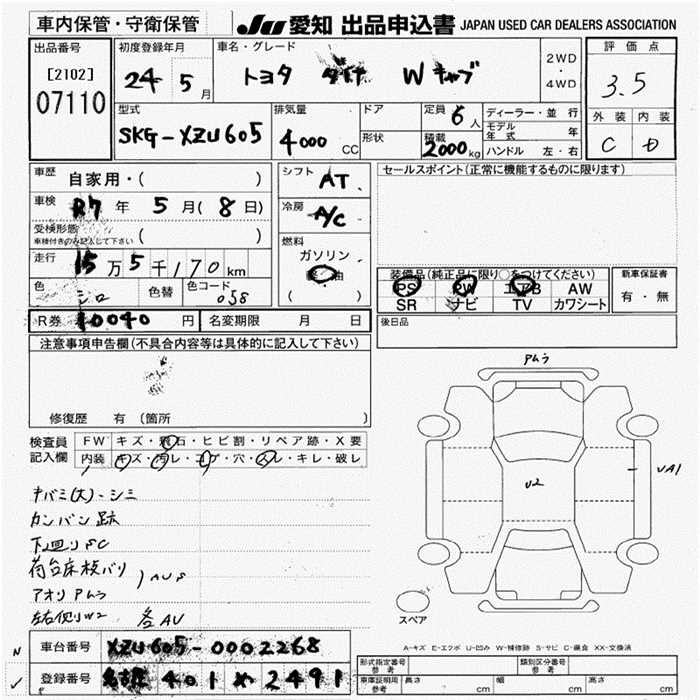 車内保管・守衛保管
JU 愛知 出品申込書 JAPAN USED CAR DEALERS ASSOCIATION
出品番号
[2102]
07110
初度登録年月
24 5月
車名・グレード
トヨタ ダイナ Wキャブ
2WD
・
4WD
評価点
3.5
型式
SKG-XZU605
排気量
4000 CC
ドア
形状
定員 6人
積載
2000kg
ディーラー・並行
モデル年式 年
ハンドル 左・右
外装 内装
C D
車歴
自家用・( )
車検
R7年 5月(8日)
受検形態
車検付きのみ記入して下さい ( )
走行
15万5千170km
色
シロ
色替
色コード
058
R券 10040円
名変期限 月 日
シフト
AT
冷房
A/C
燃料
ガソリン
軽油
( )
セールスポイント(正常に機能するものに限ります)
装備品(純正品に限り○をつけてください)
PS PW エアB AW
SR ナビ TV カワシート
新車保証書
有・無
後日品
注意事項申告欄(不具合内容等は具体的に記入して下さい)
修復歴 有(箇所
検査員
記入欄
FW キズ・飛石・ヒビ割・リペア跡・X要
内装 キズ・汚レ・コゲ・穴・スレ・キレ・破レ
キバミ(大)・シミ
カンバン跡
下回りSC
荷台床板バリ
アオリアムラ
左右側W2
各AU
アムラ
U2
UA1
スペア
A-キズ E-エクボ U-凹み W-補修跡 S-サビ C-腐食 XX-交換済
N
車台番号 XZU605-0002268
✓
登録番号 401 2491
形式指定番号
参考
類別区分番号
参考
車庫証明用
参考
長さ cm
幅 cm
高さ cm